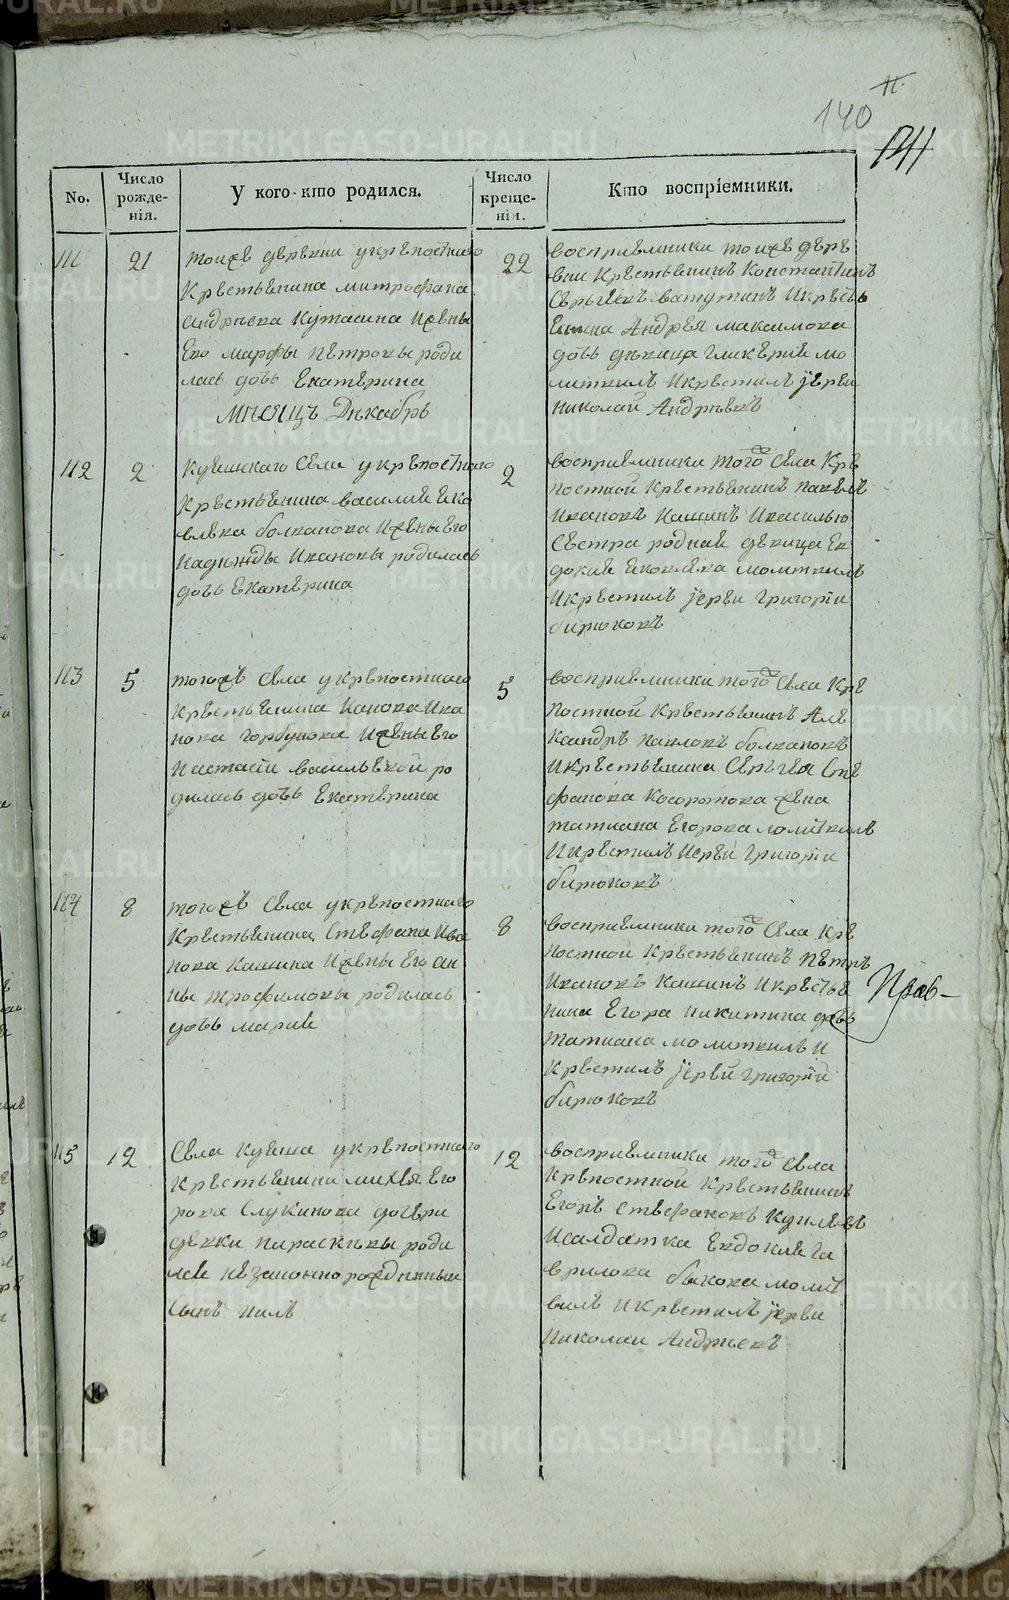 140
141
No.
Число рожде-нія.
У кого кто родился.
Число креще-нія.
Кто воспріемники.
111
21
тоижъ деревни укрепостнаго
крестьенина митрофана
андреева кутасина ижены
Его марфы петровы роди
лась дочь Екатерина
22
восприемники тоижъ дере
вни крестьенинъ константинъ
Сергеевъ ватутинъ икресть
Енина Андрея максимова
дочь девица гликерие мо
литвилъ икрестилъ ïерей
николай Андреевъ
месяцъ Декабрь
112
2
Села укрепостнаго
крестьенина василие Еко
влева болванова ижены Его
надежды ивановы родилась
дочь Екатерина
2
восприемники того Села кре
постной крестьенинъ павелъ
ивановъ кашинъ ивасилью
Сестра родная девица Ев
докие Ековлева молитвилъ
икрестилъ ïерей григорïи
бирюковъ
113
5
тогожъ Села укрепостнаго
крестьенина ива
нова горбунова ижены Его
настасïи васильевой ро
дилась дочь Екатерина
5
восприемники того Села кре
постной крестьенинъ Але
ксандръ павловъ болвановъ
икрестьенина Сергея Сте
фанова косоротова жена
татиана Егорова молитвилъ
икрестилъ иерей григорïи
бирюковъ
114
8
тогожъ Села укрепостнаго
крестьенина Стефана ива
нова кашина ижены Его ан
ны трофимовы родилась
дочь марие
8
восприемники того Села кре
постной крестьенинъ петръ
ивановъ кашинъ икрестье
нина Егора никитина дочь
татиана молитвилъ и
крестилъ ïерей григорïи
бирюковъ
115
12
Села куяша укрепостнаго
крестьенина михея Его
рова Слукинова дочери
девки парасковы роди
лсе незаконнорожденный
Сынъ нилъ
12
восприемники того Села
крепостной крестьенинъ
Егоръ Стефановъ
исалдатка Евдокие га
врилова быкова молит
вилъ икрестилъ ïерей
николаи Андреевъ
METRIKI.GASO-URAL.RU